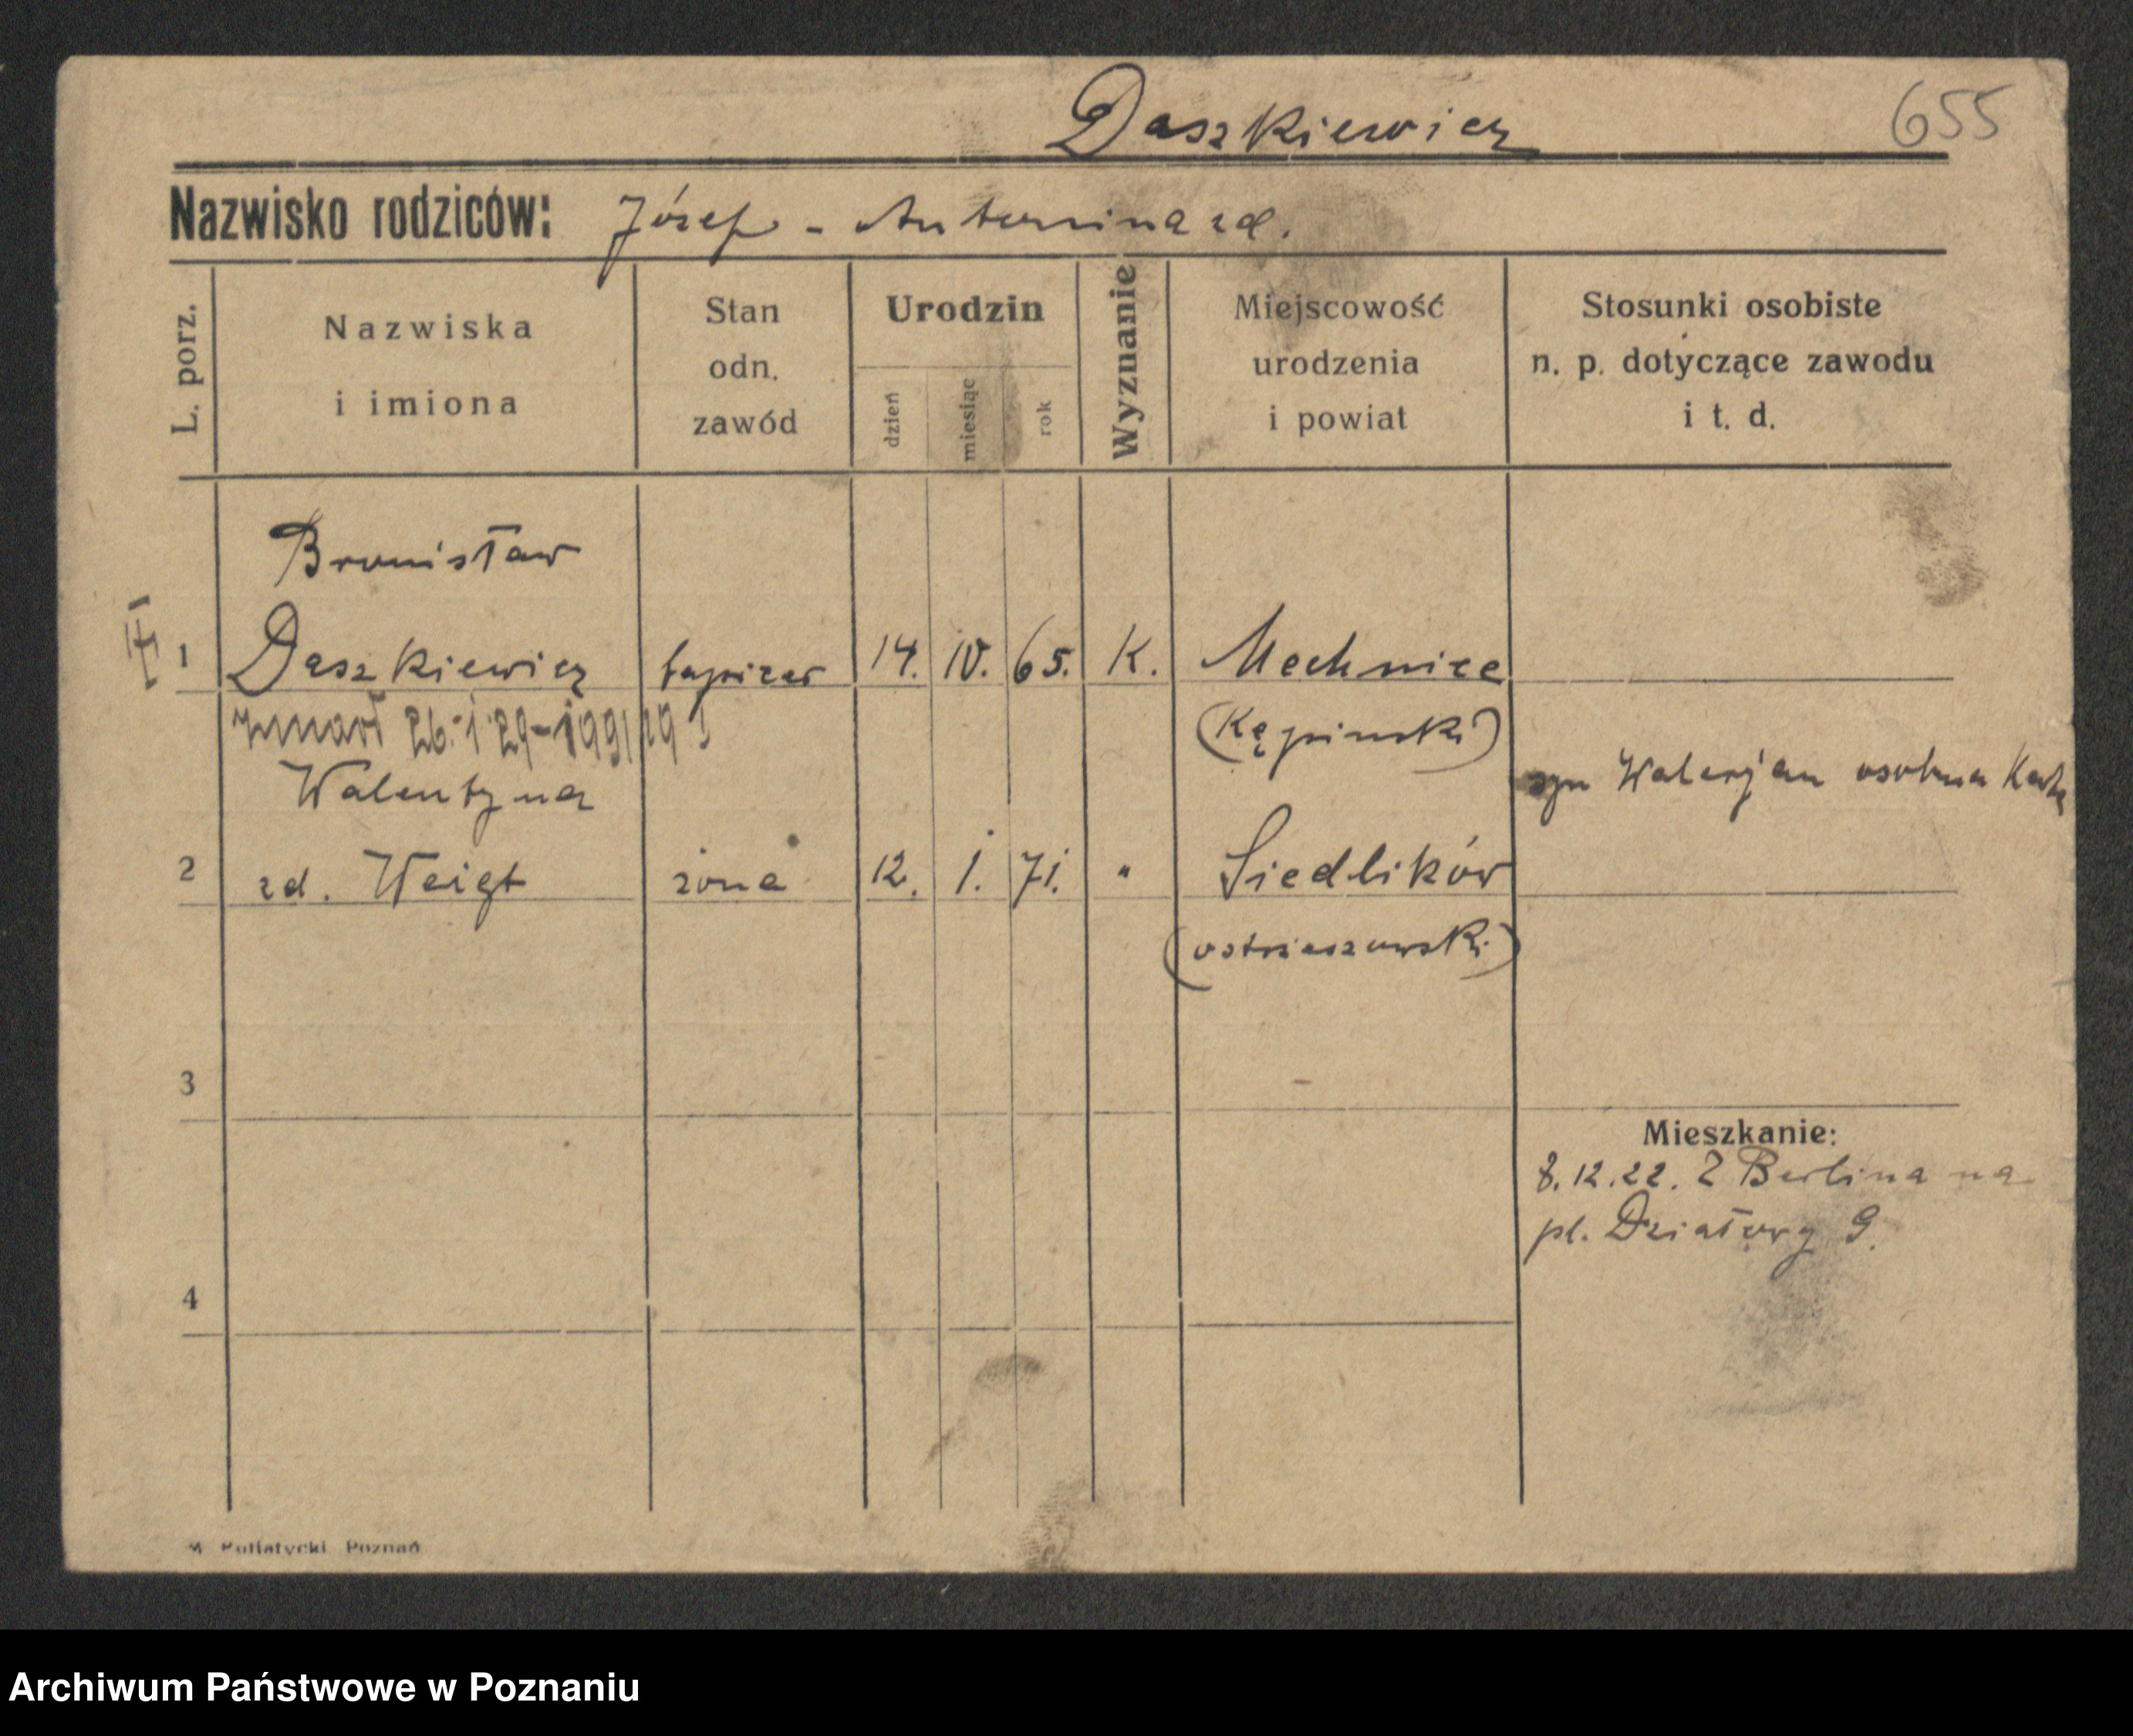 Daszkiewicz 655
Nazwisko rodziców: Józef - Antonina zd.
L. porz.
Nazwiska
i imiona
Stan
odn.
zawód
Urodzin
dzień
miesiąc
rok
Wyznanie
Miejscowość
urodzenia
i powiat
Stosunki osobiste
n. p. dotyczące zawodu
i t. d.
Bronisław
1 Daszkiewicz tapicer 14. 10. 65. K. Mechnice
zmarł 26.1.29-199/29 (Kępiński)
syn Walerjan osobna Karta
Walentyna
2 zd. Weigt żona 12. 1. 71. " Siedlików
(ostrzeszowski)
3
Mieszkanie:
8.12.22. Z Berlina na
pl. Działowy 9.
4
M Putiatycki Poznań
Archiwum Państwowe w Poznaniu